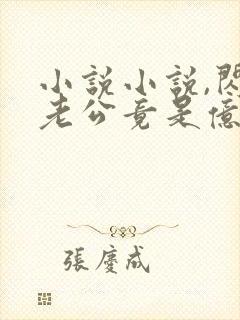 小說小說,閃
老公竟是億
張慶成